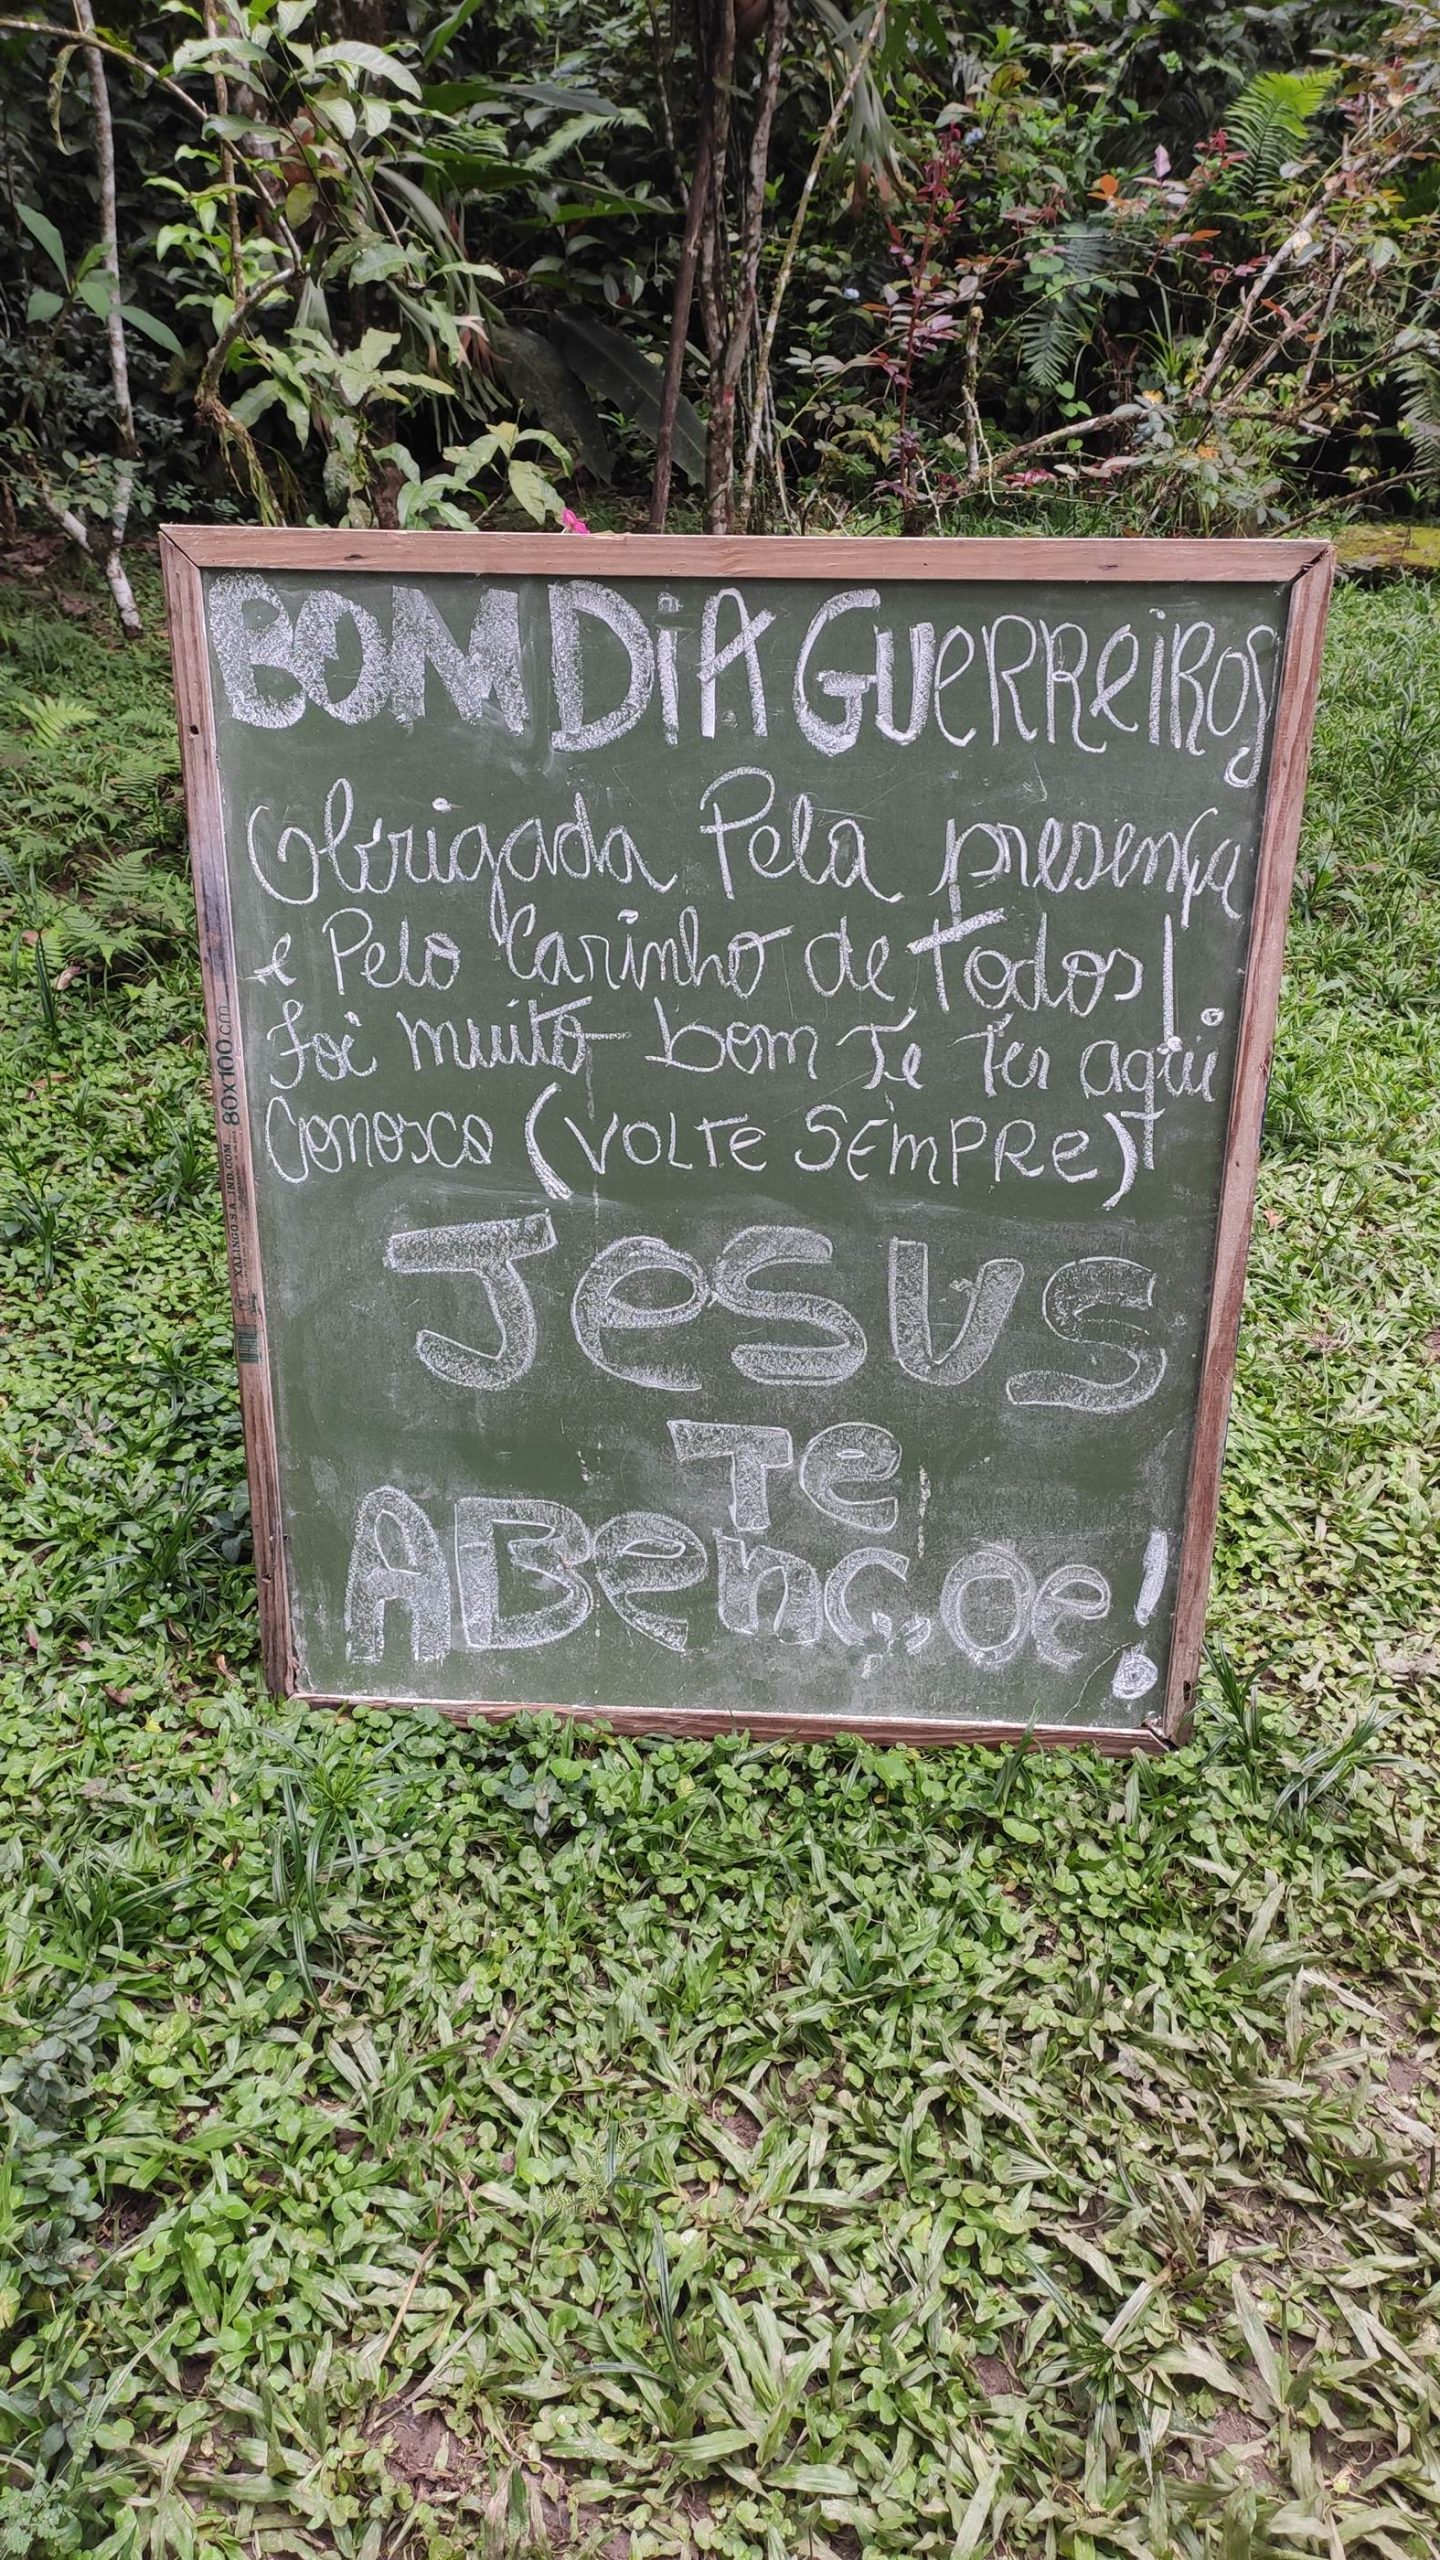 BOM DiA GUeRReiROS
Obrigada Pela presença
e Pelo Carinho de Todos!
Foi muito bom Te Ter aqui
Conosco (VOLTe SEMPRe)
JeSUS
Te
ABençoe!
80x100cm
XALINGO S.A. IND.COM.